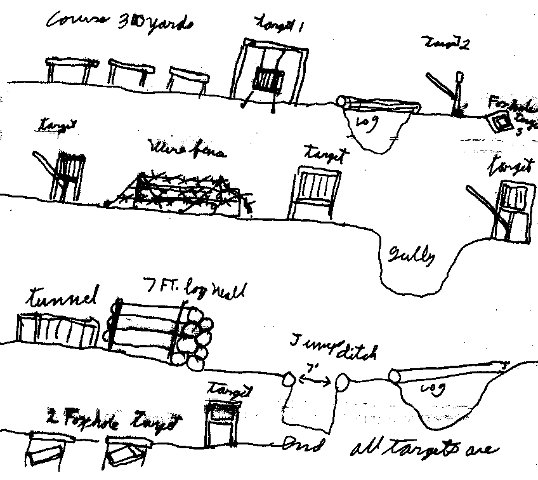 Course 300 yards
target 1
target 2
Log
Foxhole
target
3
target
Wire fence
target
target
gully
tunnel
7 FT. log wall
Jump ditch
7'
Log
target
2 Foxhole target
End
all targets are